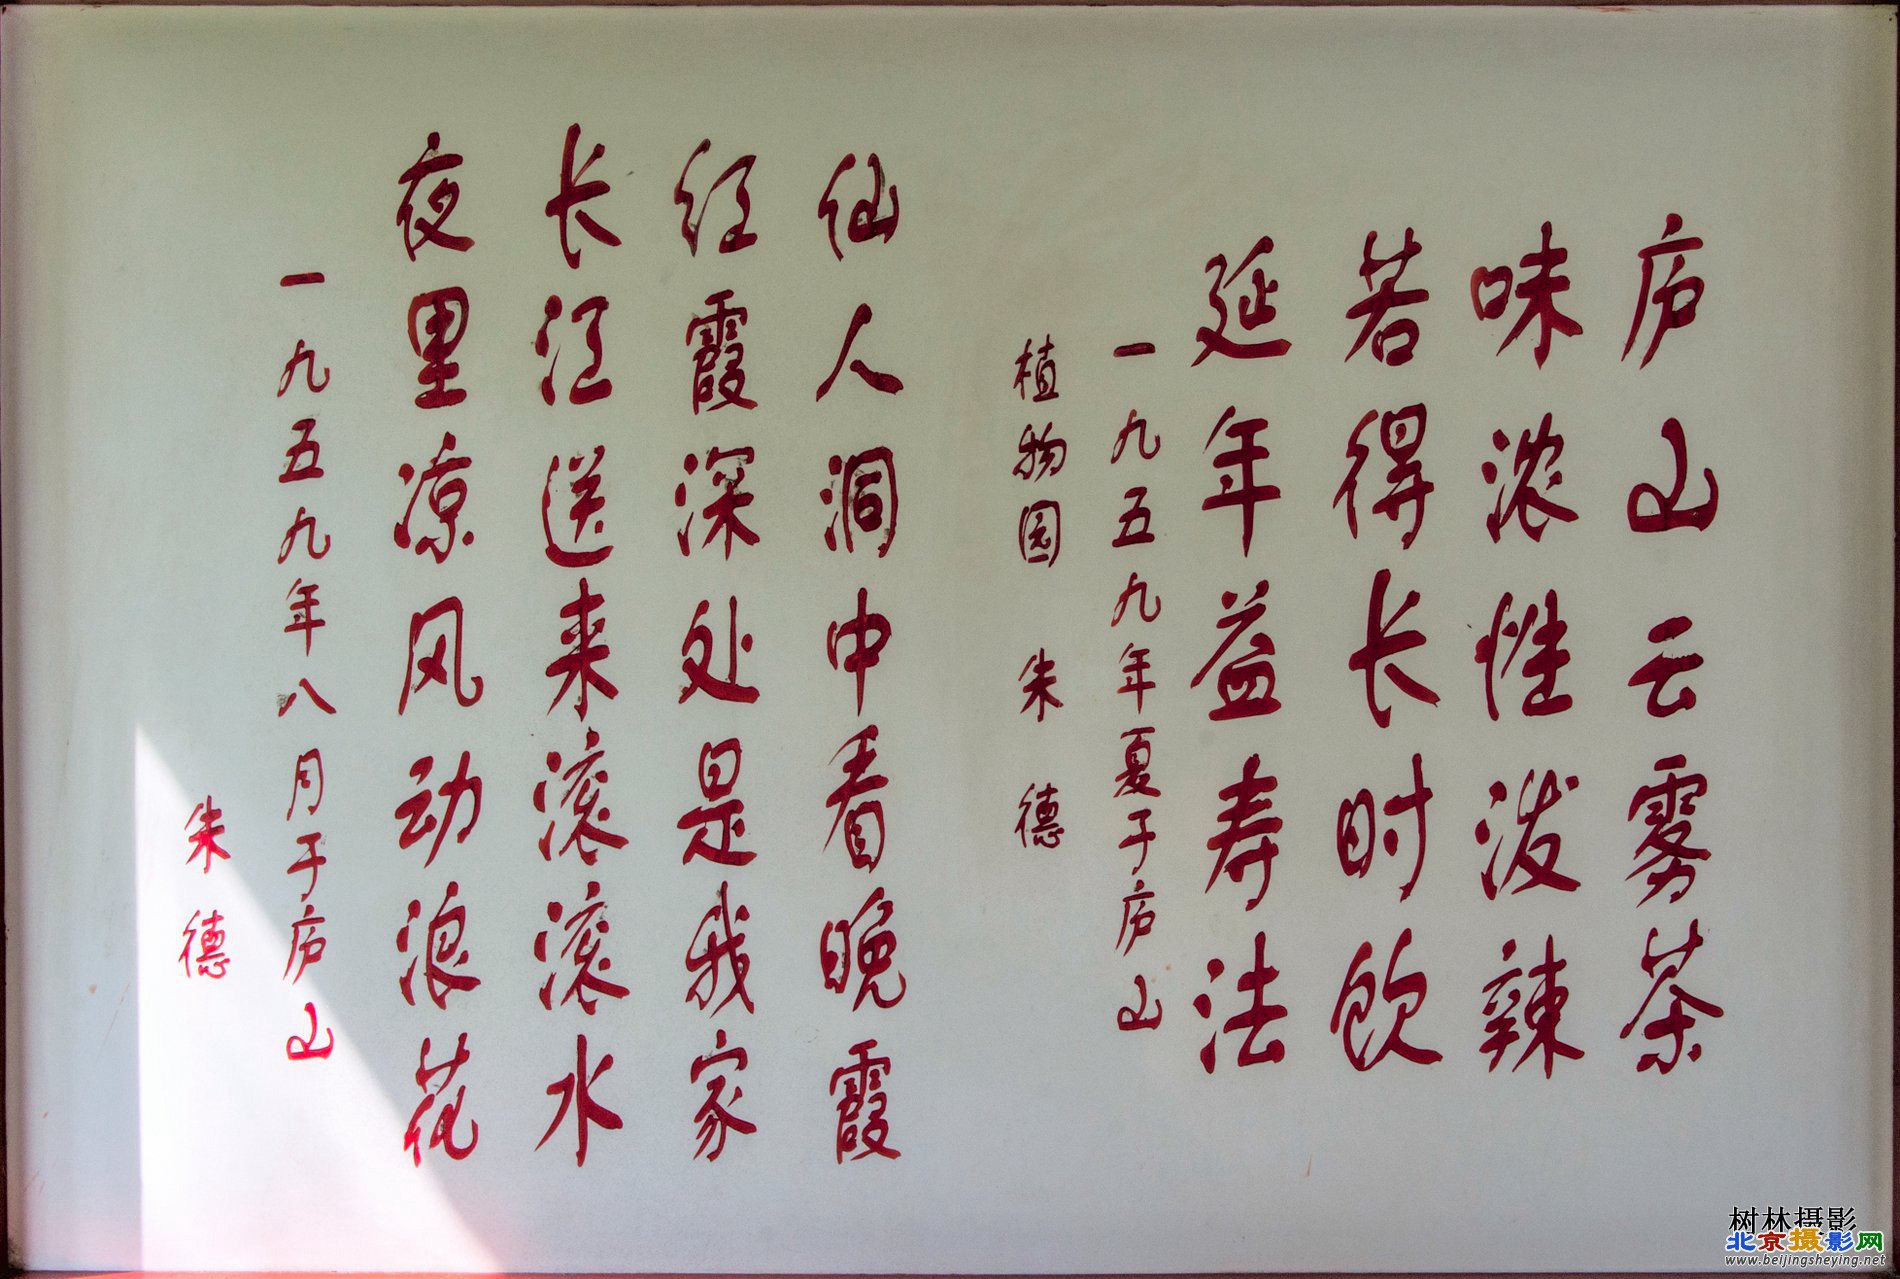 庐山云雾茶
味浓性泼辣
若得长时饮
延年益寿法
一九五九年夏于庐山
植物园 朱德
仙人洞中看晚霞
红霞深处是我家
长江送来滚滚水
夜里凉风动浪花
一九五九年八月于庐山
朱德
树林摄影
北京摄影网
www.beijingsheying.net